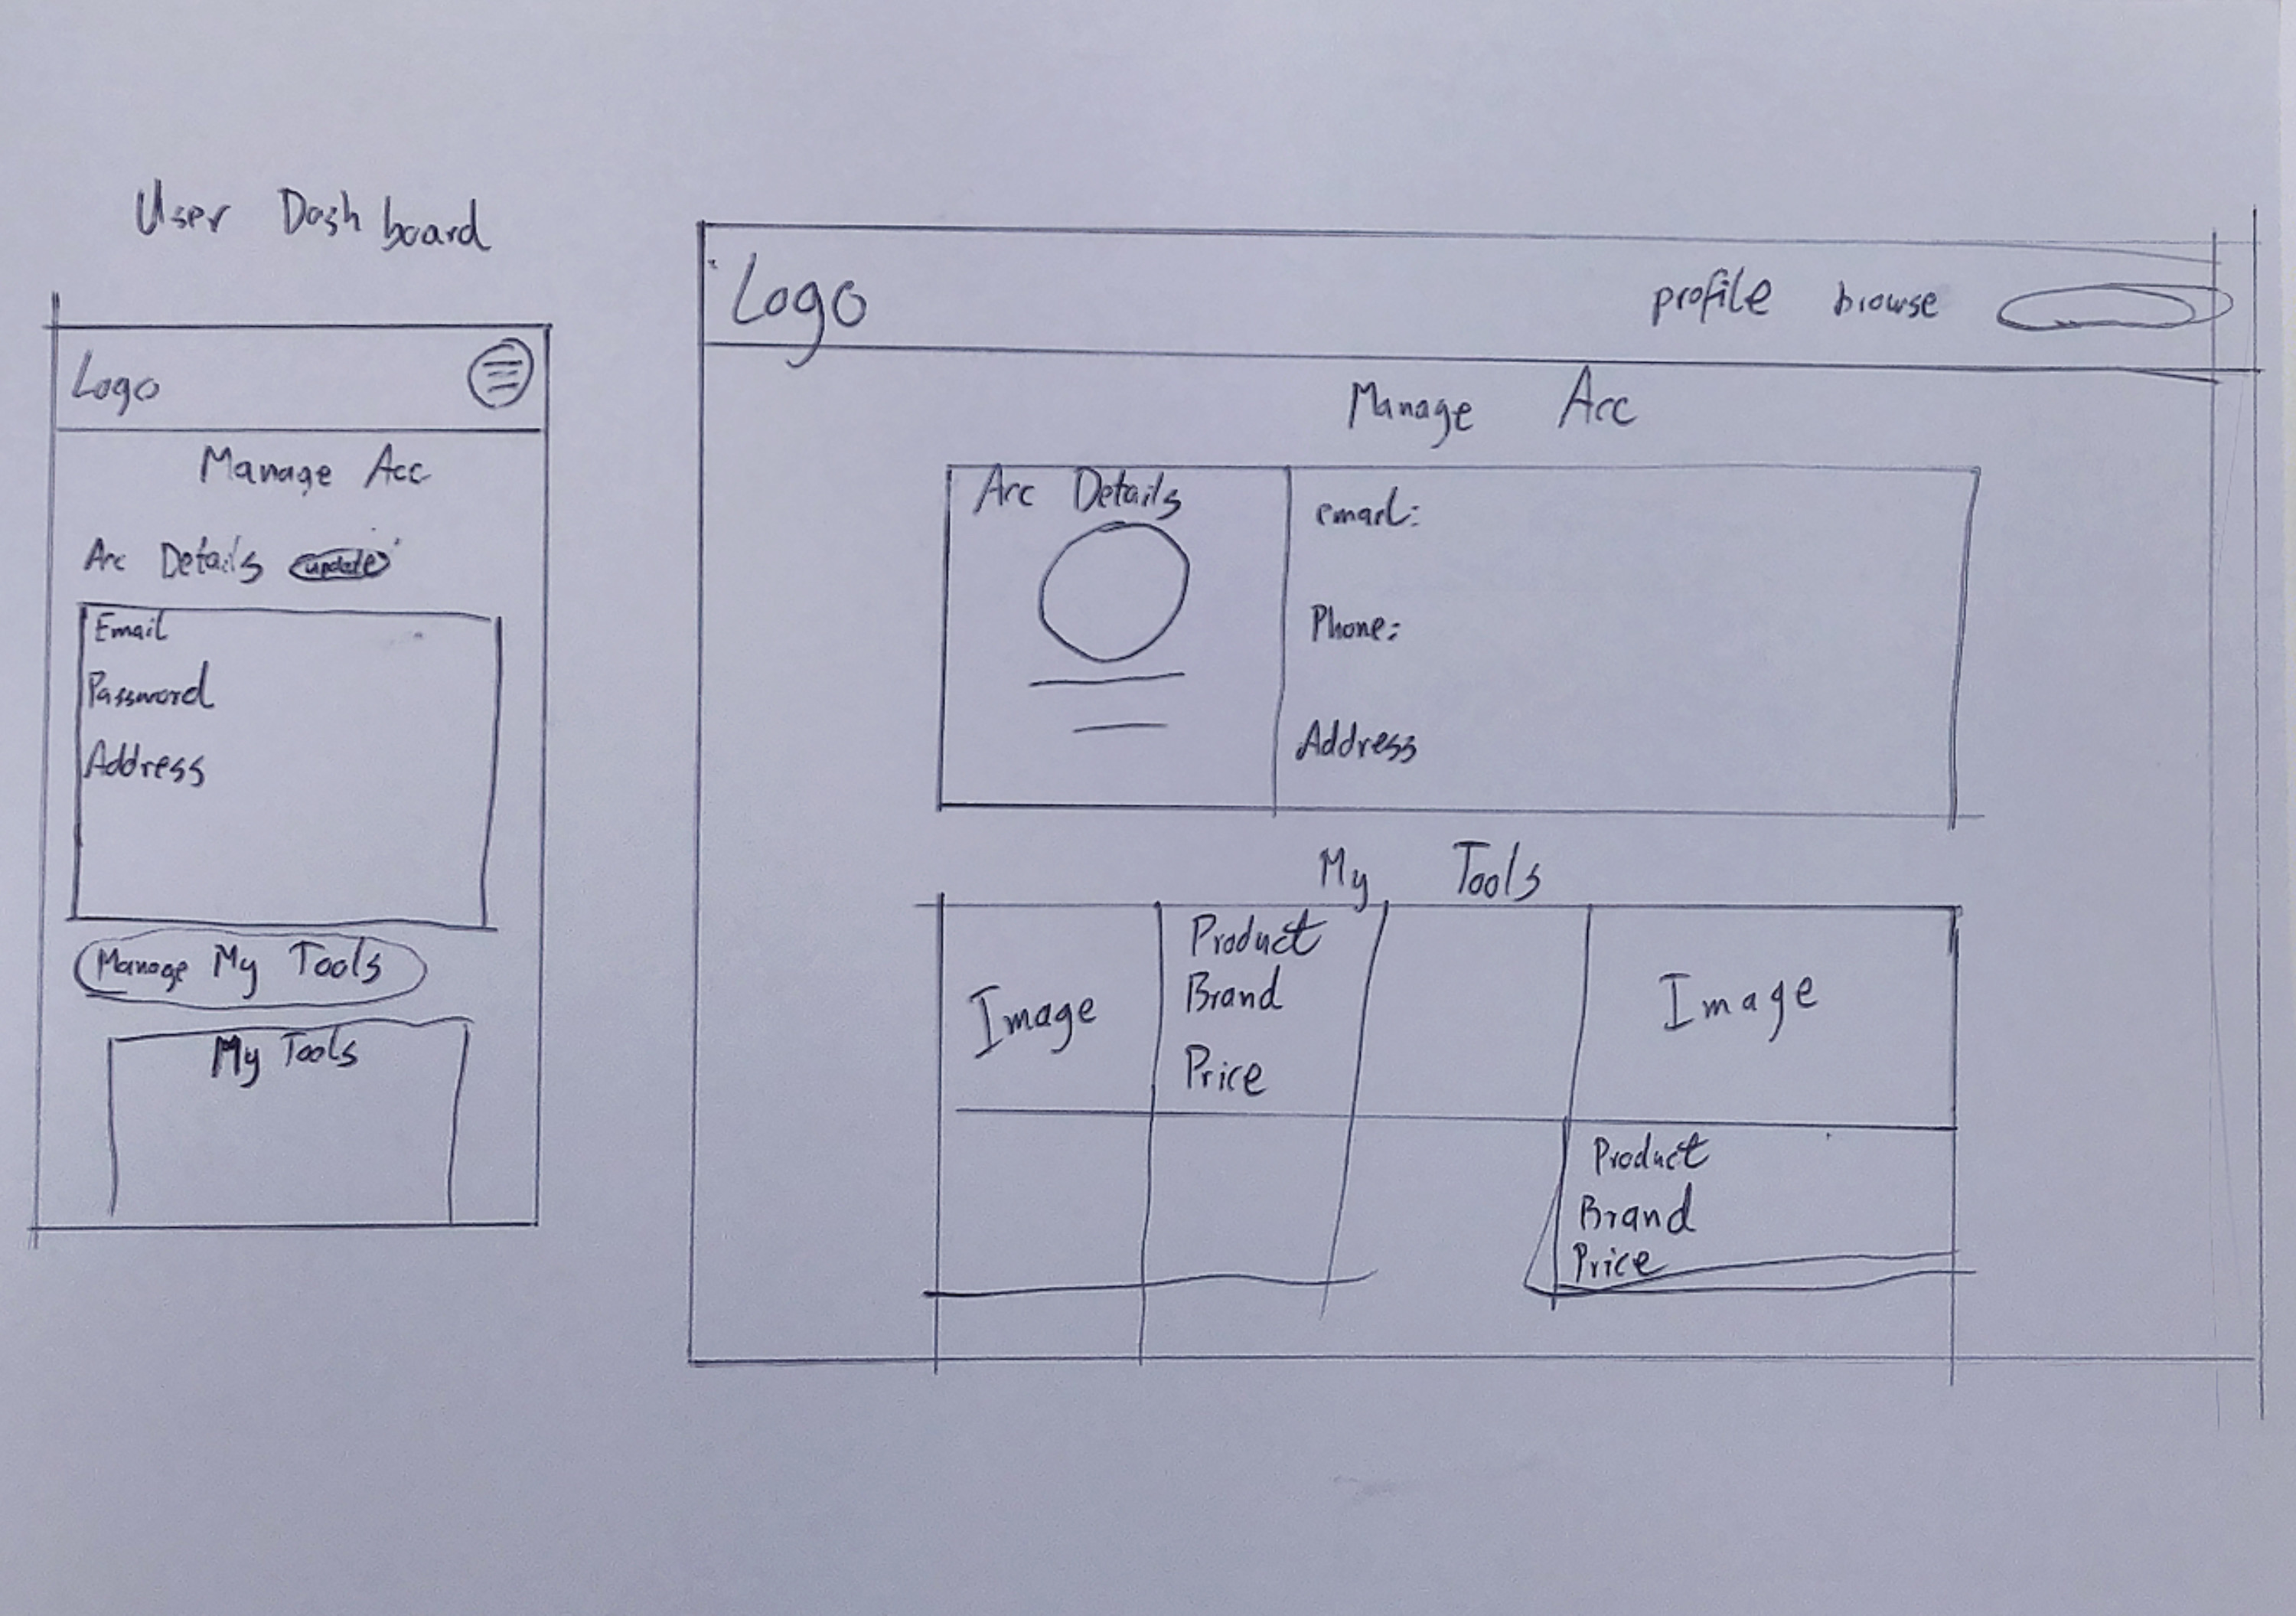 User Dashboard
Logo
Manage Acc
Acc Details update
Email
Password
Address
Manage My Tools
My Tools
Logo profile browse
Manage Acc
Acc Details
email:
Phone:
Address
My Tools
Image
Product
Brand
Price
Image
Product
Brand
Price